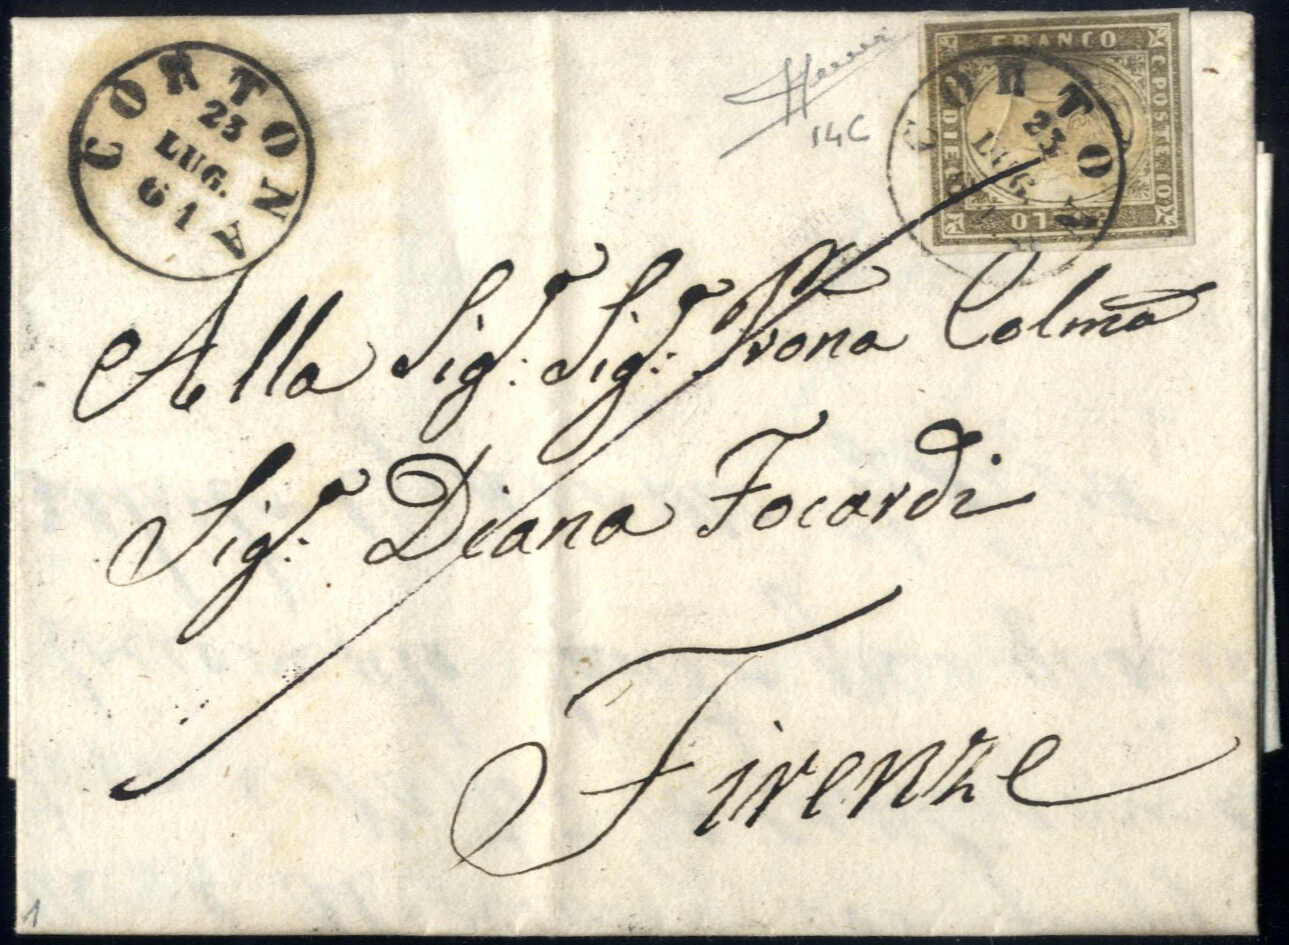 CORTONA
23
LUG.
61
14C
FRANCO
C. POSTE 10
BOLLO
CORTONA
23
LUG.
Alla Sig:ª Sig:ª Prona Colma
Sig:ª Diana Focardi
Firenze
1